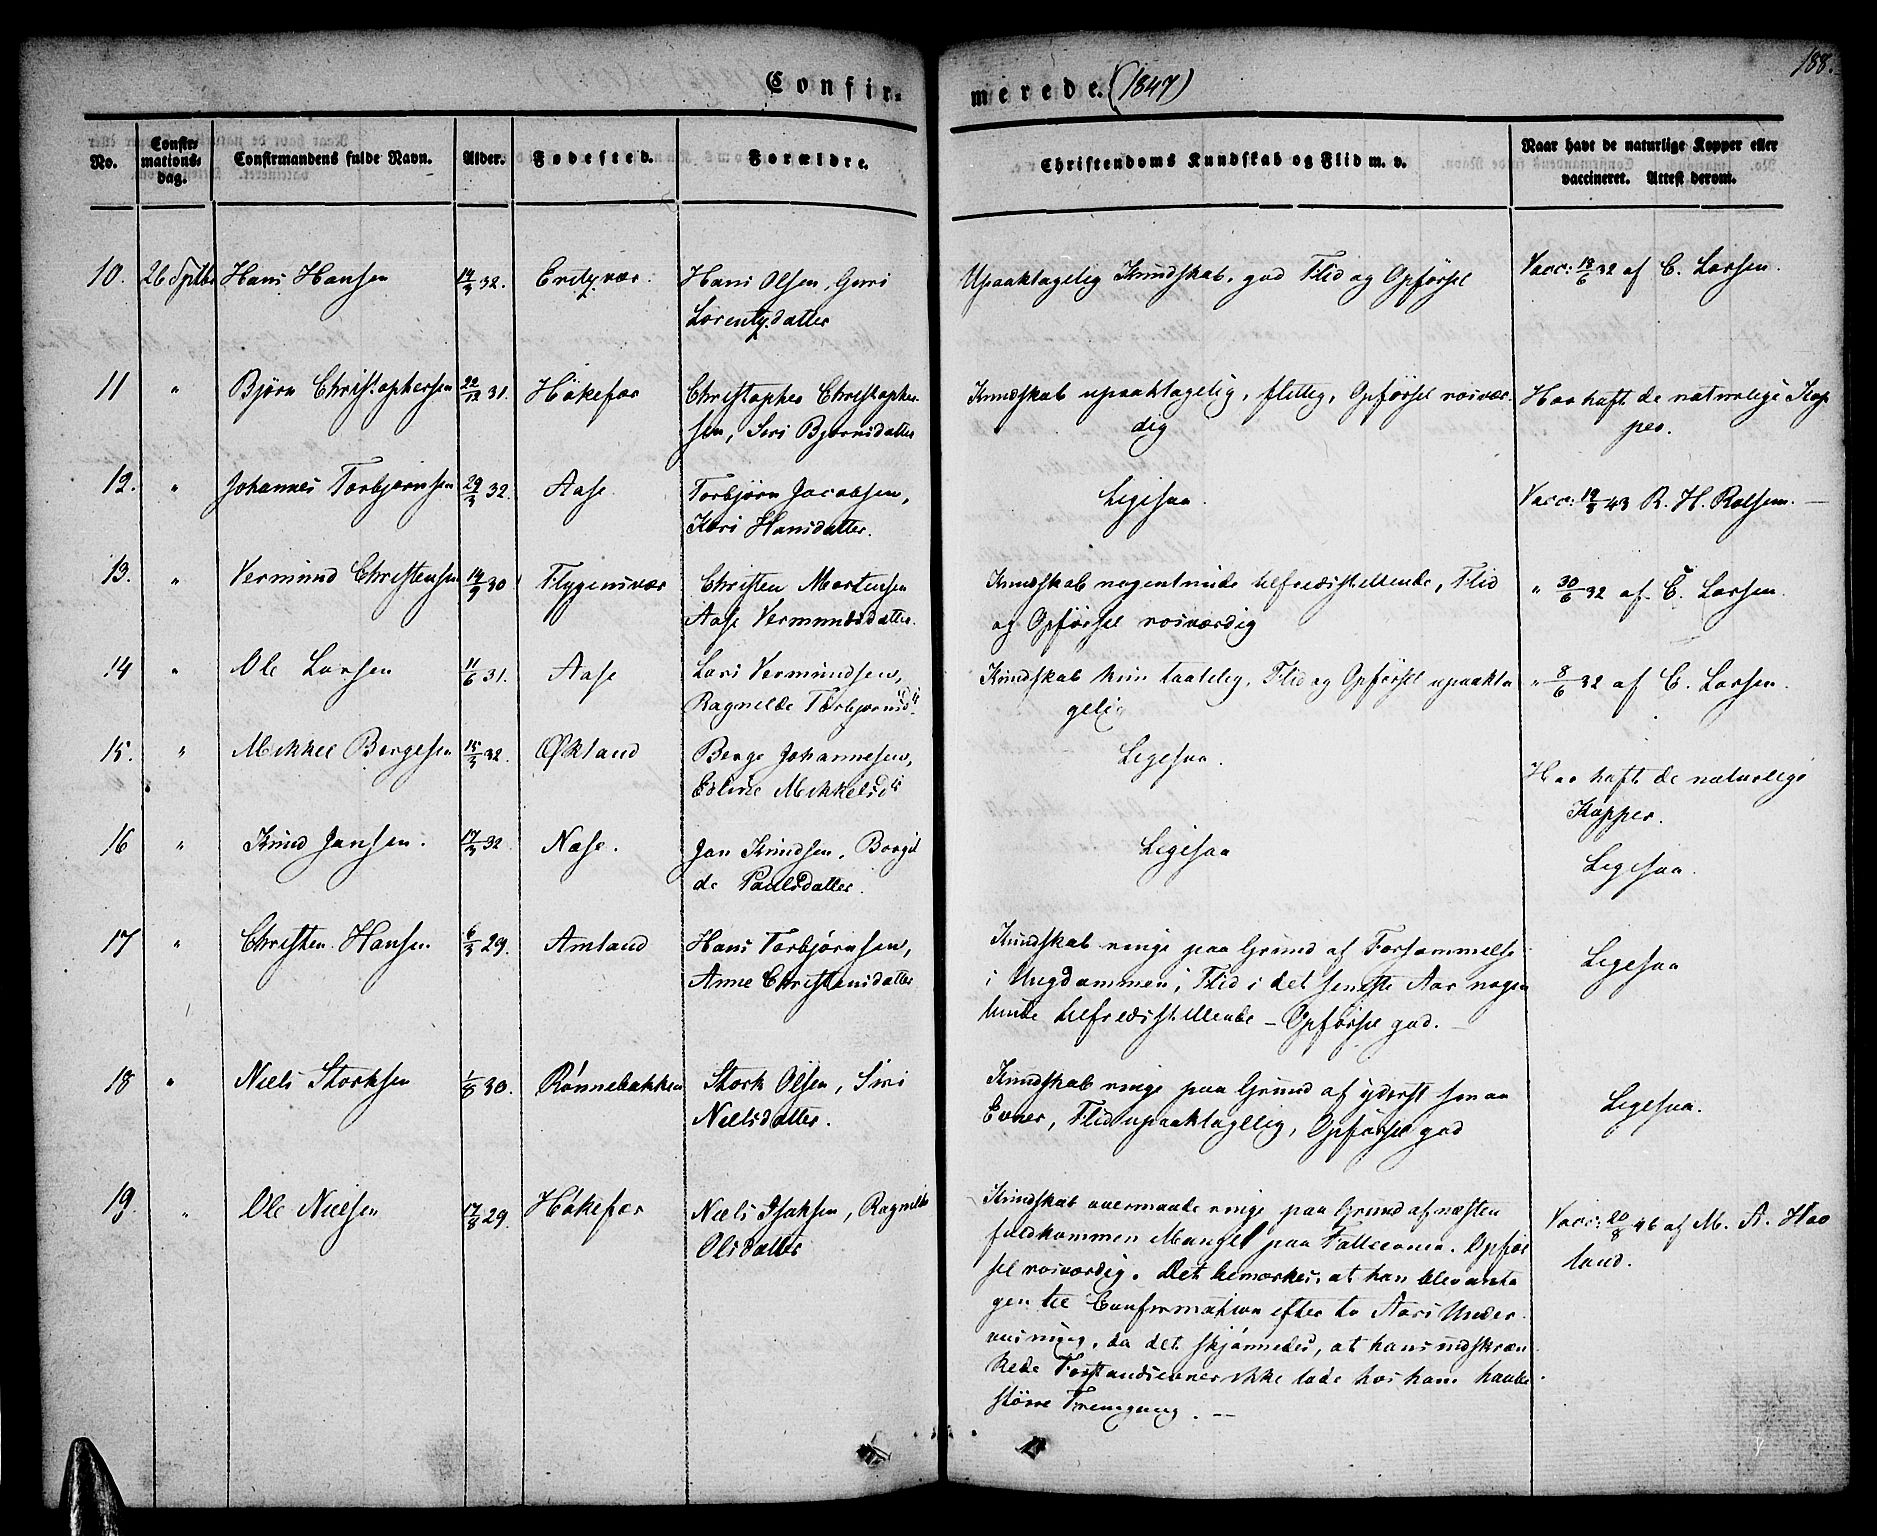 188.
Confir-
merede. (1847)
No.
Confir-
mations-
dag.
Confirmandens fulde Navn.
Alder.
Fødested.
Forældre.
Christendoms Kundskab og Flid m. v.
Naar havt de naturlige Kopper eller
vaccineret. Attest derom.
10. 26 Sptbr Hans Hansen 14/3 32. Hans Olsen, Guri Upaaklagelig Kundskab, god Flid og Opførsel Vacc: 18/6 32 af C. Larsen.
Lorentzdatter
11 " Bjørn Christophersen 22/12 31. Hökefær Christopher Christopher- Kundskab upaaklagelig, flittig, Opførsel rosvær- Har haft de naturlige Kop
sen, Siri Bjørnsdatter dig per.
12. " Johannes Torbjørnsen 29/3 32. Aase. Torbjørn Jacobsen, Ligesaa. Vacc: 19/3 43 R. H. Rolfsen. —
Kari Hansdatter.
13. " Vermund Christensen 14/9 30 Flygensvær Christen Mortensen Kundskab nogenlunde tilfredsstillende, Flid " 30/6 32 af C. Larsen.
Aase Vermundsdatter. og Opførsel rosværdig
14 " Ole Larsen 11/6 31. Aase Lars Vermundsen, Kundskab kun taalelig, Flid og Opførsel upaakla " 8/6 32 af C. Larsen.
Ragnilde Torbjørnsdtr gelig
15. " Mikkel Børgesen 15/3 32. Økland Børge Johannesen, Ligesaa. Har haft de naturlige
Edline Mikkelsdtr Kopper.
16 " Knud Jansen. 17/3 32. Nase. Jan Knudsen, Borgil Ligesaa Ligesaa.
de Paulsdatter.
17 " Christen Hansen 6/3 29. Amland Hans Torbjørnsen, Kundskab ringe paa Grund af Forsømmelse Ligesaa
Anne Christensdatter i Ungdommen, Flid i det seneste Aar nogen
lunde tilfredsstillende – Opførsel god. —
18 " Niels Storksen 1/8 30. Rønnebakken Stork Olsen, Siri Kundskab ringe paa Grund af yderst smaa Ligesaa.
Nielsdatter. Evner, Flid upaaklagelig, Opførsel god
19. " Ole Nielsen 17/8 29. Hökefær Niels Isaksen, Ragnilde Kundskab overmaade ringe paa Grund af næsten Vacc: 20/8 46 af M. A. Haa
Olsdatter fuldkommen Mangel paa Fatteevne. Opfør land.
sel rosværdig. Det bemærkes, at han blev anta
gen til Confirmation efter to Aars Under-
viisning, da det skjønnedes, at hans indskræn-
kede Forstandsevner ikke lode hos ham haabe
større Fremgang. —